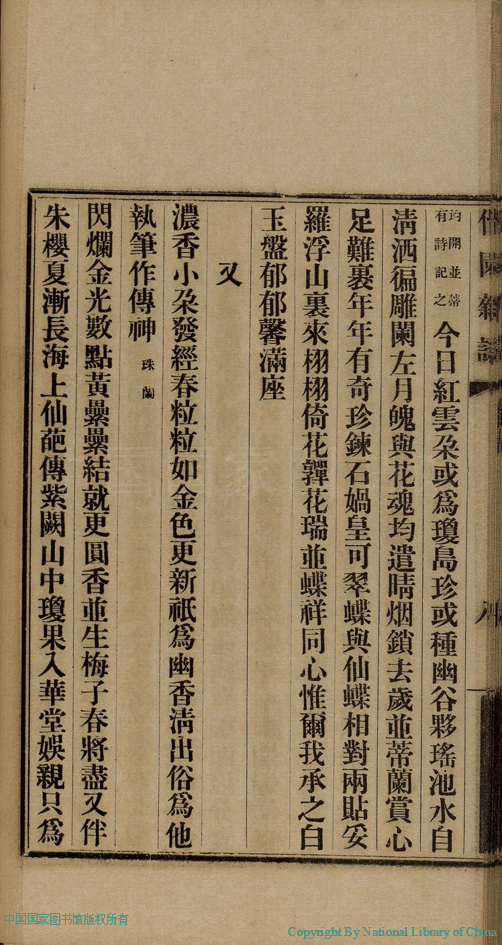 均開並蒂
有詩記之
今日紅雲朶或爲瓊島珍或種幽谷夥瑤池水自
淸洒徧雕闌左月魄與花魂均遣晴烟鎖去歲並蒂蘭賞心
足難裹年年有奇珍鍊石媧皇可翠蝶與仙蝶相對兩貼妥
羅浮山裏來栩栩倚花嚲花瑞並蝶祥同心惟爾我承之白
玉盤郁郁馨滿座
又
濃香小朶發經春粒粒如金色更新祇爲幽香淸出俗爲他
執筆作傳神
珠蘭
閃爛金光數點黃纍纍結就更圓香並生梅子春將盡又伴
朱櫻夏漸長海上仙葩傳紫闕山中瓊果入華堂娛親只爲
中国国家图书馆版权所有
Copyright By National Library of China